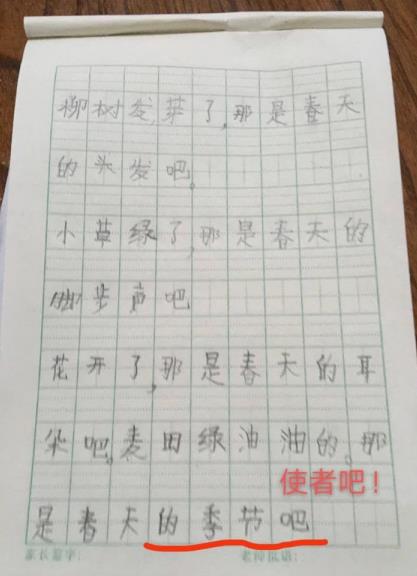 柳树发芽了,那是春天
的头发吧。
小草绿了,那是春天的
脚步声吧
花开了,那是春天的耳
朵吧。麦田绿油油的。那
使者吧!
是春天的季节吧
家长签字: 老师成语: